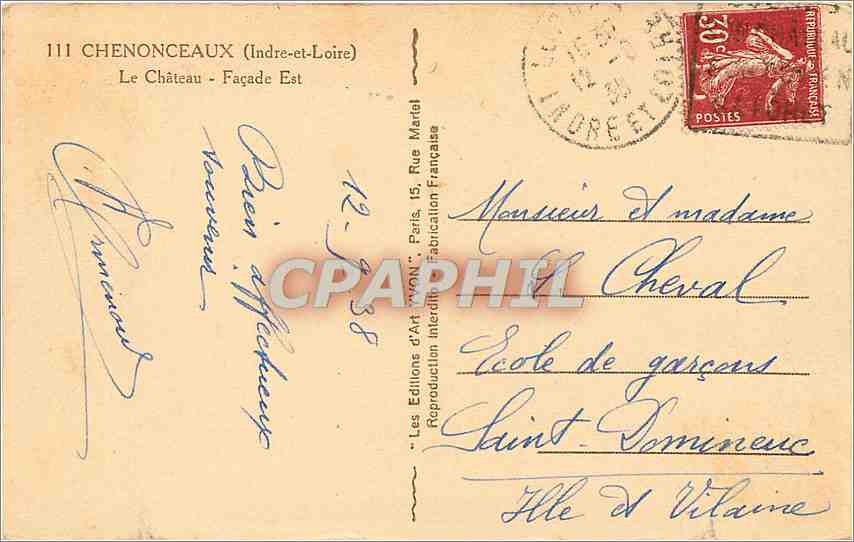 111 CHENONCEAUX (Indre-et-Loire)
Le Château - Façade Est
12-9 38
Bien affectueux
souvenir
"Les Editions d'Art YVON", Paris, 15, Rue Martel
Reproduction Interdite - Fabrication Française
INDRE ET LOIRE
30c
REPUBLIQUE FRANÇAISE
POSTES
Monsieur et madame
Cheval
Ecole de garçons
Saint-Domineuc
Ille et Vilaine
CPAPHIL